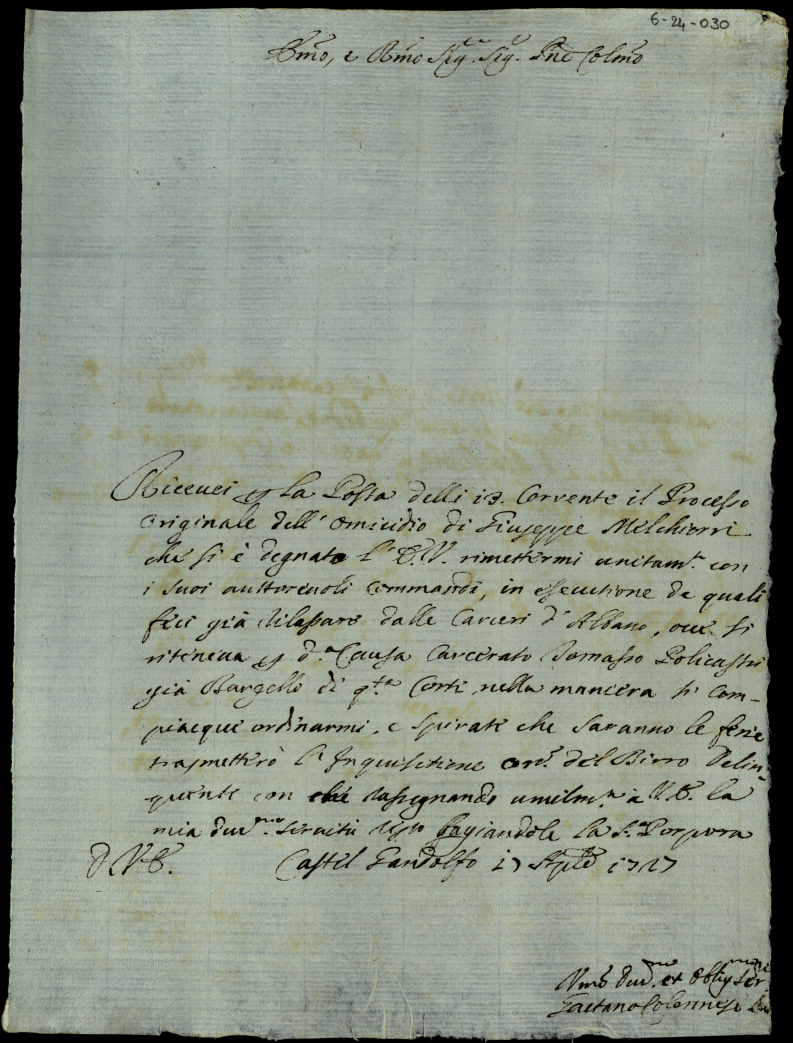 6-24-030
Emo, e Rmo Sig.re Sig.e Pne Colmo
Riceuei p la Posta delli 13. Corrente il Processo
originale dell' omicidio di Giuseppe Melchiorri
che si è degnato l' E.V. rimettermi unitam.te con
i suoi auttoreuoli Commandi, in esecutione de quali
feci già rilassare dalle Carceri d' Albano, oue si
riteneua p d.a Causa Carcerato Tomasso Policastri
già Bargello di q.ta Corte nella maniera si com-
piacque ordinarmi, e spirate che saranno le ferie
trasmetterò l' Inquisitione del Birro Delin-
quente con che rassegnando umilm.te à V.E. la
mia diu.ma seruitù resto bagiandole la S.a Porpora
D V.E. Castel Gandolfo 17 1717
Vmo Diu.mo et Oblig.mo Ser.
Gaetano Colonnesi